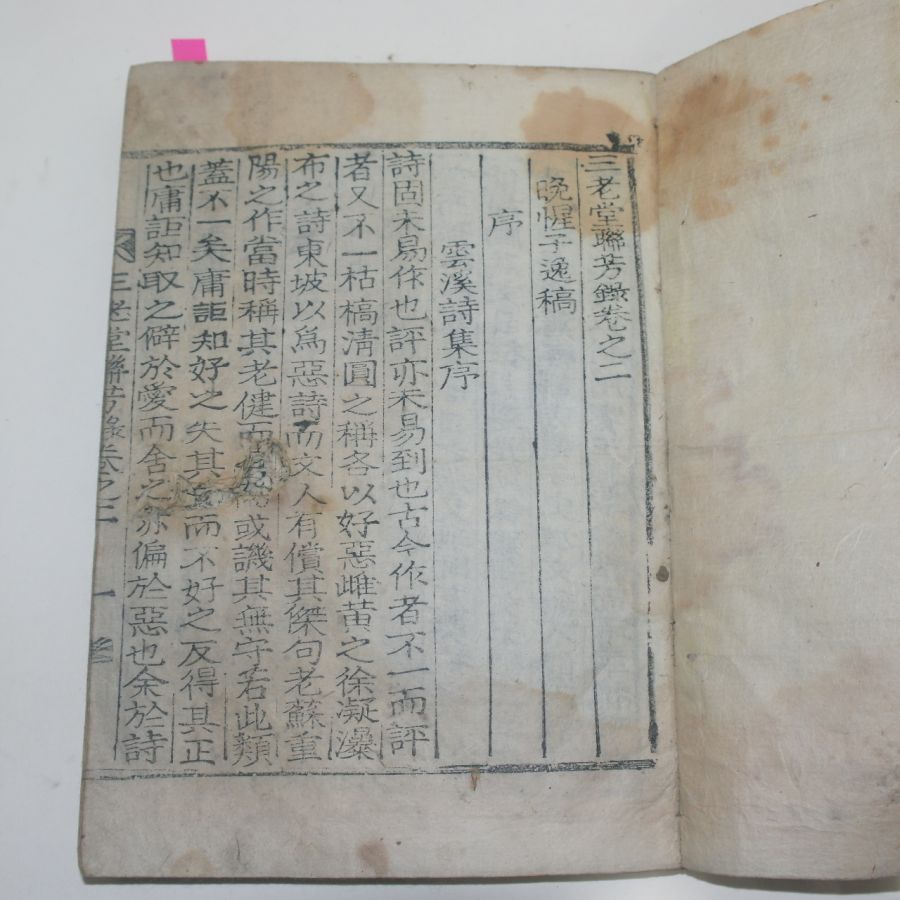 三老堂聯芳錄卷之二
晚惺子逸稿
序
雲溪詩集序
詩固未易作也評亦未易到也古今作者不一而評
者又不一枯槁淸圓之稱各以好惡雌黃之徐凝瀑
布之詩東坡以爲惡詩而文人有償其傑句老蘇重
陽之作當時稱其老健而或譏其無守若此類
蓋不一矣庸詎知好之失其而不好之反得其正
也庸詎知取之僻於愛而舍之亦偏於惡也余於詩
三老堂聯芳錄卷之二 一